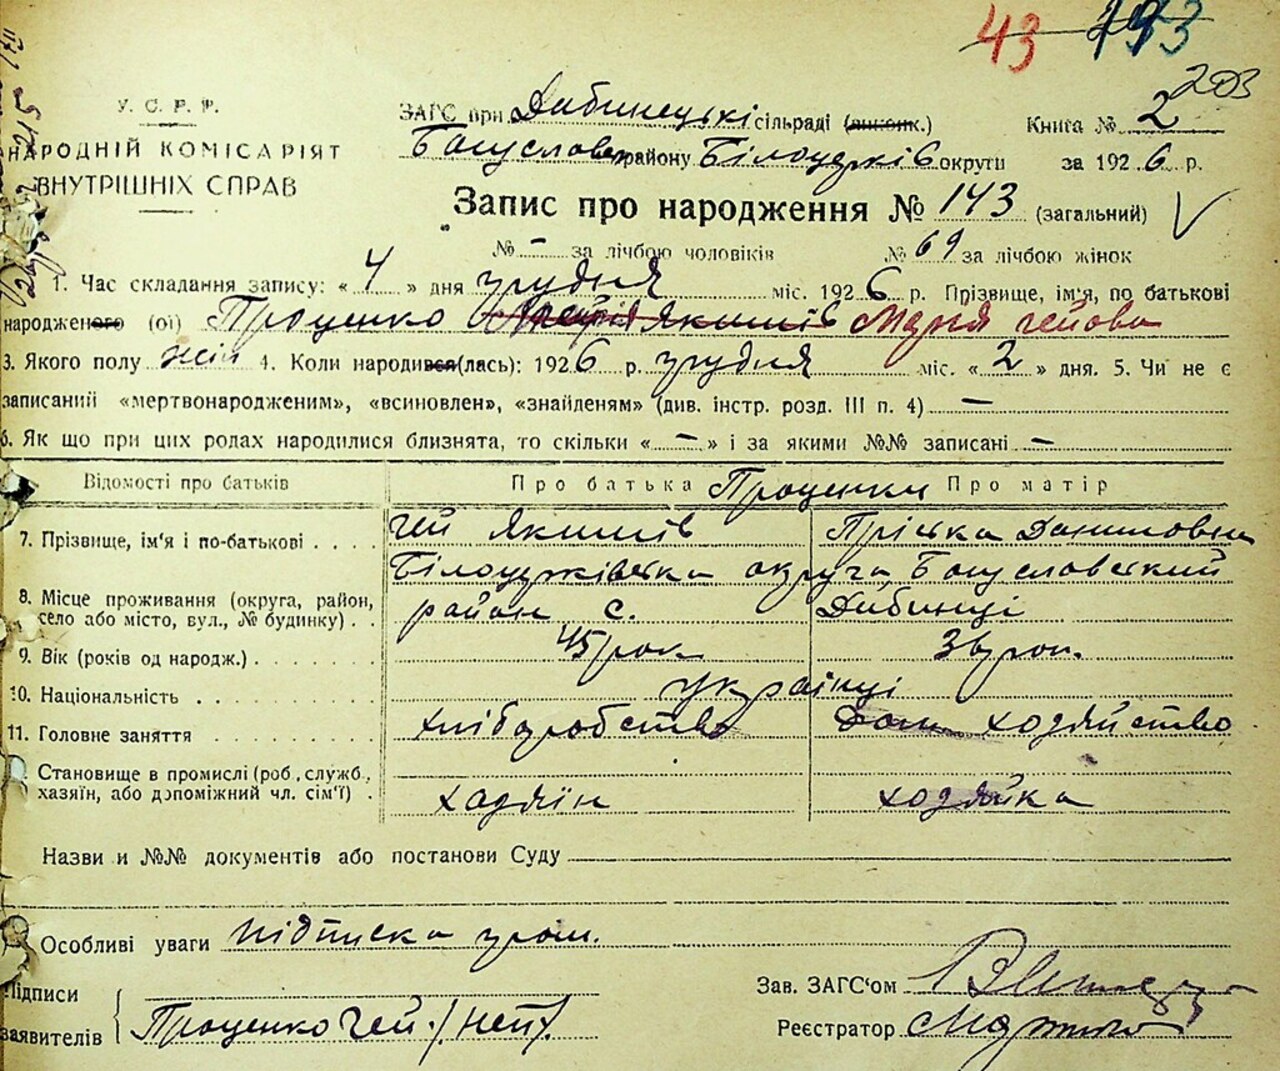 43 193
203
У. С. Р. Р.
НАРОДНІЙ КОМІСАРІЯТ
ВНУТРІШНІХ СПРАВ
ЗАГС при Дибинецькі сільраді (виконк.) Книга № 2
Богуславськ району Білоцерків округи за 1926 р.
Запис про народження № 143 (загальний)
№ – за лічбою чоловіків № 69 за лічбою жінок
1. Час складання запису: « 4 » дня грудня міс. 1926 р. Прізвище, ім'я, по батькові
народженого (ої) Проценко Якимів Марія
3. Якого полу жін 4. Коли народився(лась): 1926 р. грудня міс. « 2 » дня. 5. Чи не є
записаний «мертвонародженим», «всиновлен», «знайденям» (див. інстр. розд. III п. 4) –
6. Як що при цих родах народилися близнята, то скільки « – » і за якими №№ записані –
Відомості про батьків Про батька Проценки Про матір
7. Прізвище, ім'я і по-батькові Якимів Пріська Даниловна
8. Місце проживання (округа, район, село або місто, вул., № будинку) Білоцерківська округа, Богуславский
район с. Дибинці
9. Вік (років од народж.) 45 рок 36 рок.
10. Національність українці
11. Головне заняття хліборобство хозяйство
Становище в промислі (роб., служб., хазяїн, або допоміжний чл. сім'ї) хазяїн хозяйка
Назви и №№ документів або постанови Суду
Особливі уваги підписка
Підписи
заявителів Проценко
Зав. ЗАГС'ом
Реєстратор